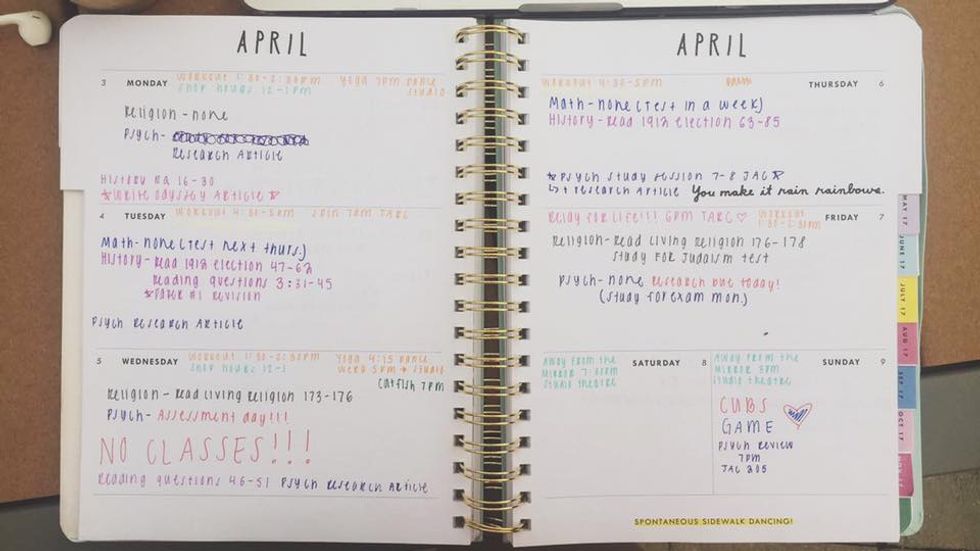 APRIL
3 MONDAY WORKOUT 1:30-2:30pm YOGA 7pm DANCE
SHOP HOURS 12-1pm STUDIO
Religion - none
Psych-
Research Article
History RQ 16-30
*Write Odyssey Article*
4 TUESDAY WORKOUT 4:30-5pm SPIN 7pm TARC
Math-none (test next thurs.)
History-Read 1912 election 47-62
Reading questions 3:31-45
*Paper #1 Revision
Psych Research Article
5 WEDNESDAY WORKOUT 1:30-2:30pm YOGA 4:15 DANCE
SHOP HOURS 12-1 WERQ 5pm → STUDIO
Catfish 7pm
Religion - Read Living Religion 173-176
Psych- Assessment day!!!
NO CLASSES!!!
Reading questions 46-51 Psych Research Article
APRIL
WORKOUT 4:30-5pm THURSDAY 6
Math-none (test in a week)
History-Read 1912 election 63-85
*Psych study session 7-8 JAC*
↳+ research article You make it rain rainbows.
Relay for Life!!! 6pm TARC ♡ WORKOUT FRIDAY 7
1:30-2:30pm
Religion-Read Living Religion 176-178
Study for Judaism test
Psych-none Research due today!
(Study for exam mon.)
AWAY FROM THE SATURDAY 8
MIRROR
STUDIO THEATRE
AWAY FROM THE SUNDAY 9
MIRROR 3pm
STUDIO THEATRE
CUBS
GAME
PSYCH REVIEW
7pm
JAC 205
SPONTANEOUS SIDEWALK DANCING!
MAY 17
JUNE 17
JULY 17
AUG 17
SEP 17
OCT 17